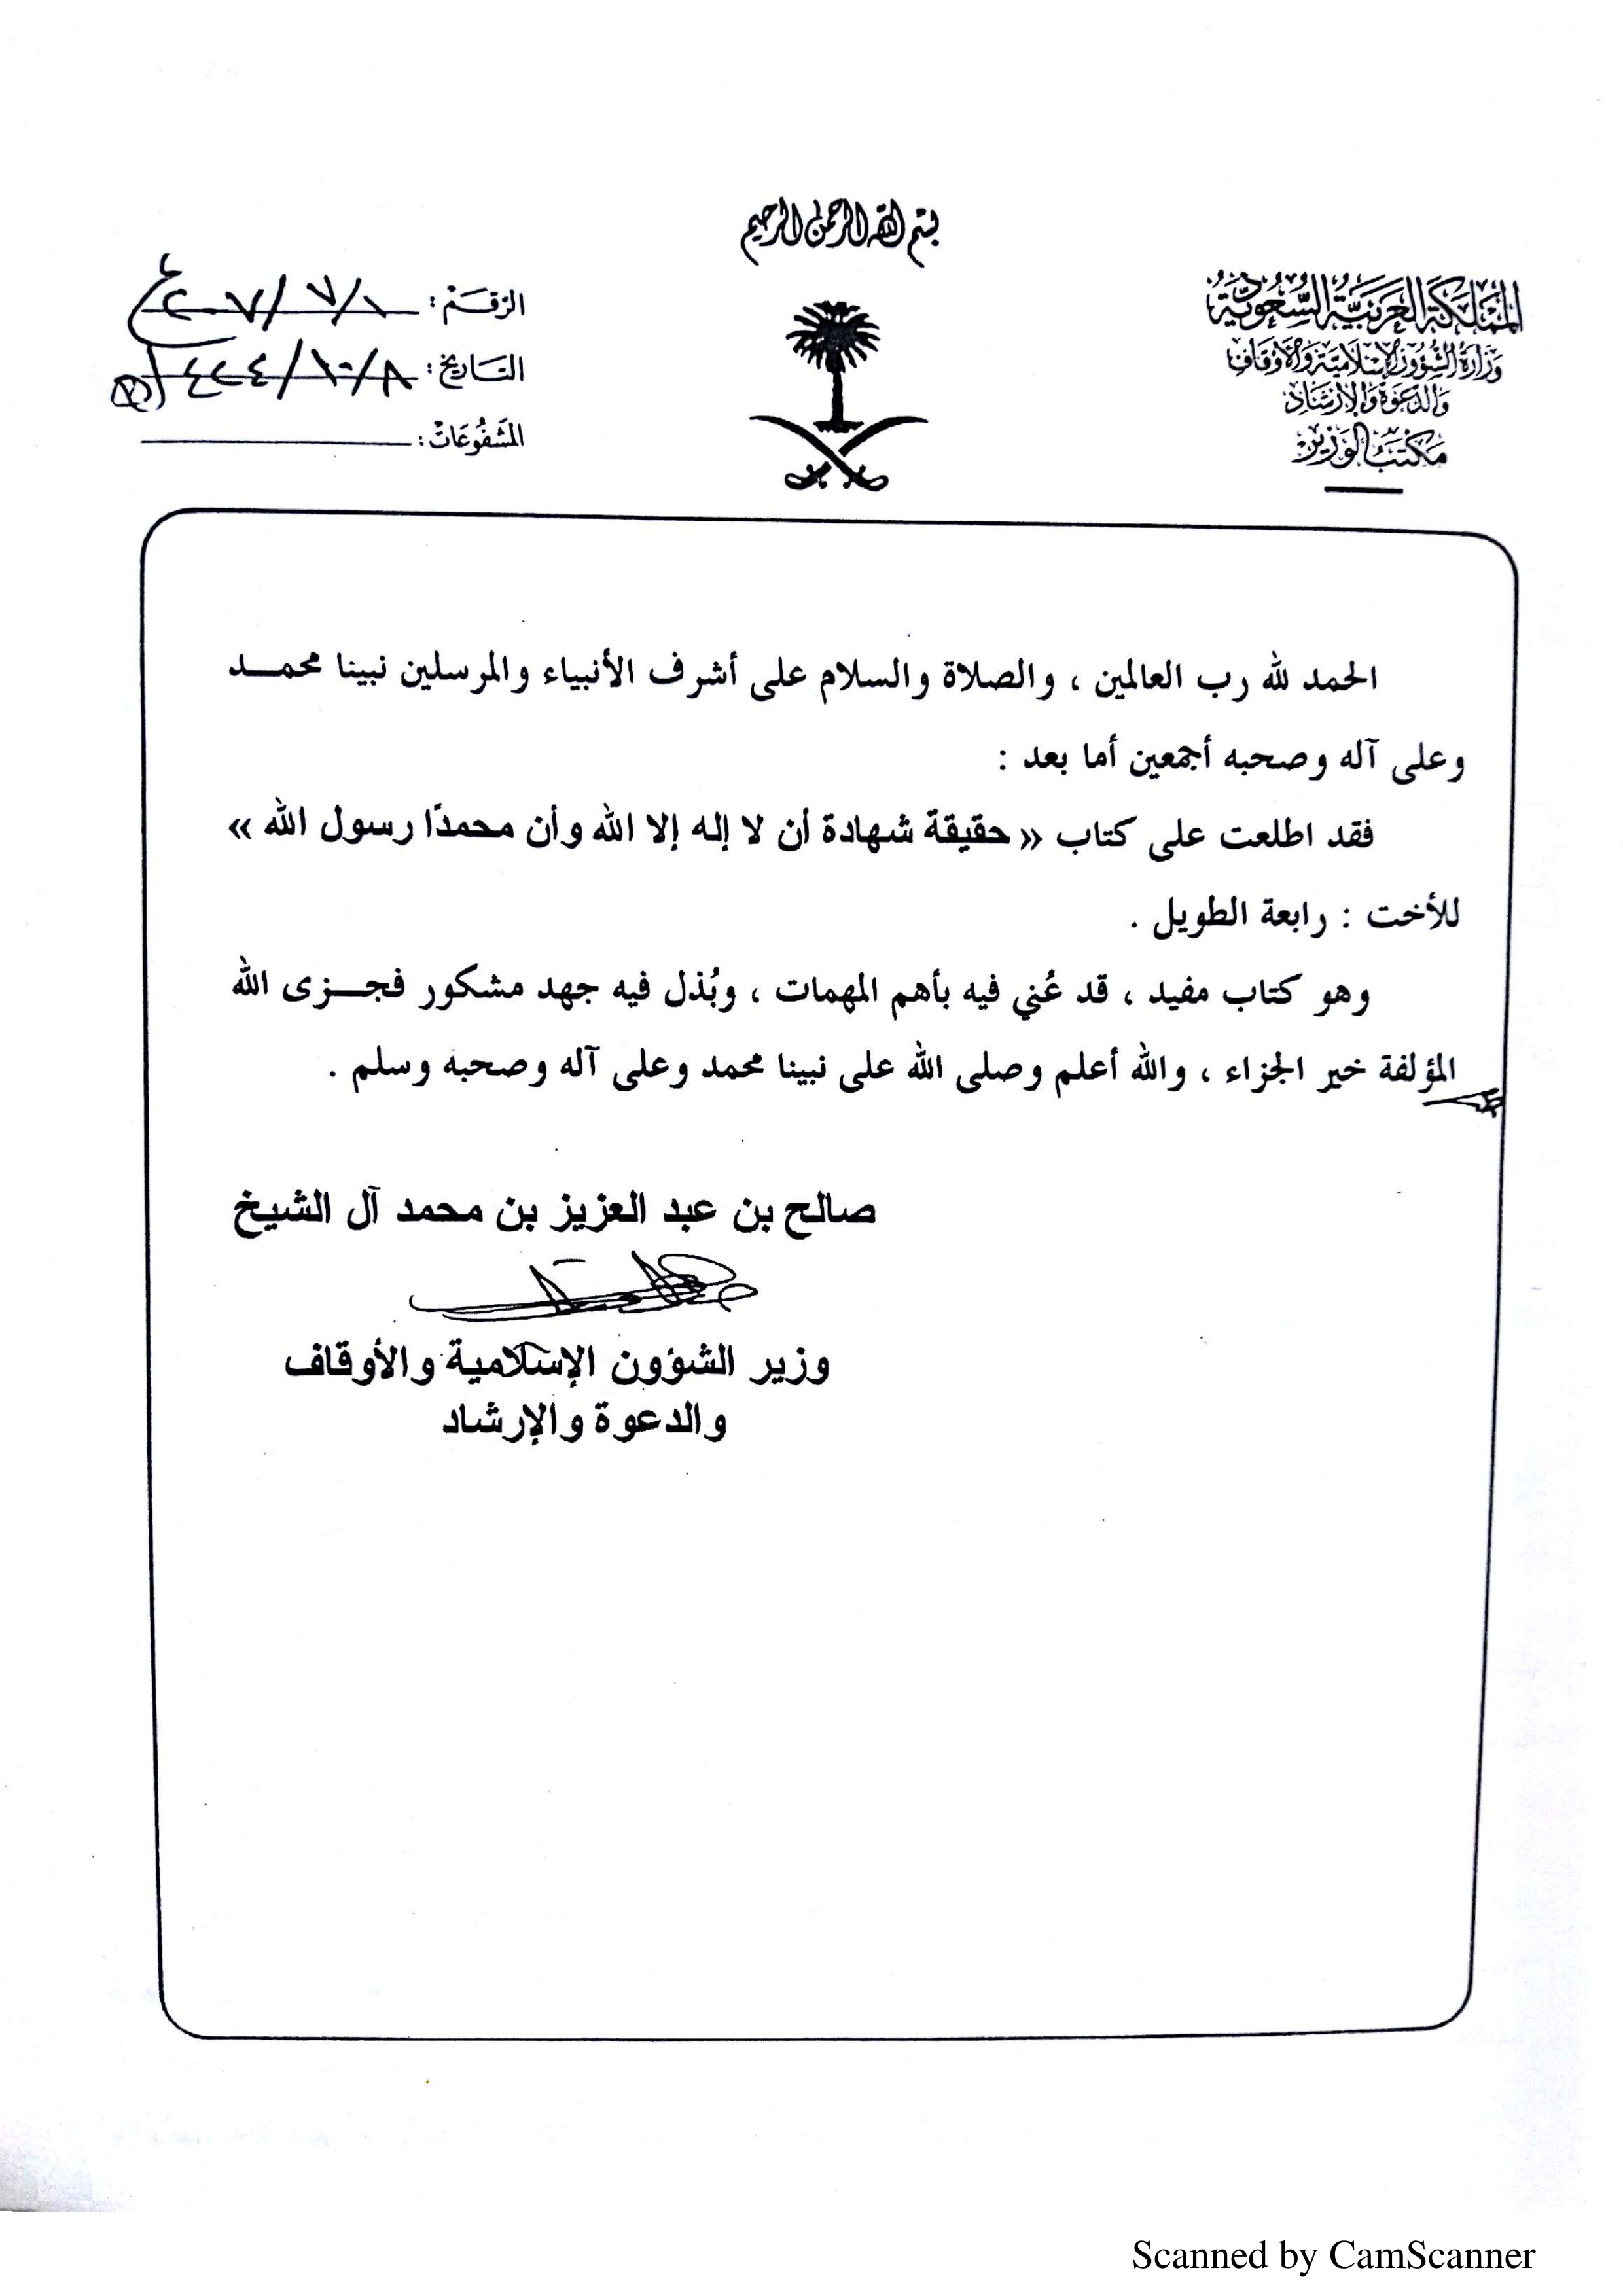 بسم الله الرحمن الرحيم
المملكة العربية السعودية
وزارة الشؤون الإسلامية والأوقاف
والدعوة والإرشاد
مكتب الوزير
الرقم:
التاريخ: ٨/١٠/١٤٢٤
المشفوعات:
الحمد لله رب العالمين ، والصلاة والسلام على أشرف الأنبياء والمرسلين نبينا محمـــد
وعلى آله وصحبه أجمعين أما بعد :
فقد اطلعت على كتاب « حقيقة شهادة أن لا إله إلا الله وأن محمدًا رسول الله »
للأخت : رابعة الطويل .
وهو كتاب مفيد ، قد عُني فيه بأهم المهمات ، وبُذل فيه جهد مشكور فجـــزى الله
المؤلفة خير الجزاء ، والله أعلم وصلى الله على نبينا محمد وعلى آله وصحبه وسلم .
صالح بن عبد العزيز بن محمد آل الشيخ
وزير الشؤون الإسلامية والأوقاف
والدعوة والإرشاد
Scanned by CamScanner